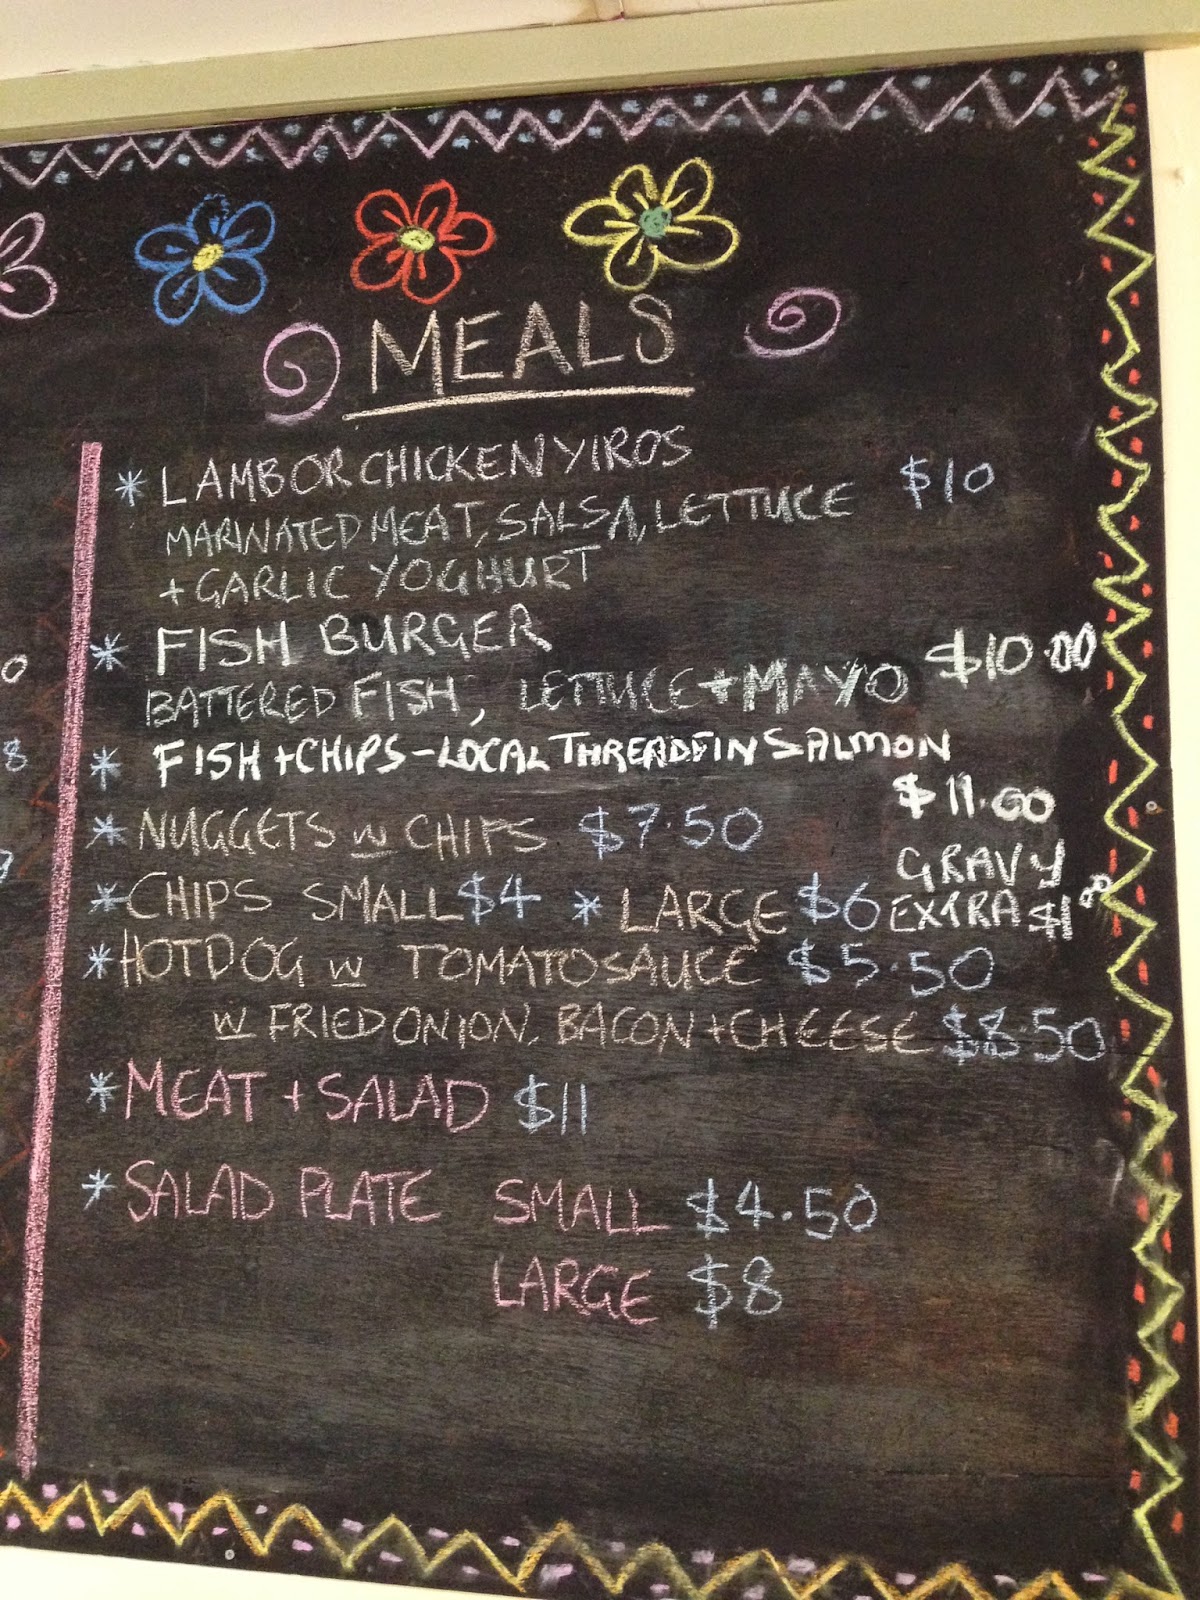 MEALS
* LAMB OR CHICKEN YIROS
MARINATED MEAT, SALSA, LETTUCE $10
+ GARLIC YOGHURT
* FISH BURGER
BATTERED FISH, LETTUCE + MAYO $10.00
* FISH + CHIPS - LOCAL THREADFIN SALMON
$11.00
* NUGGETS w CHIPS $7.50
GRAVY
* CHIPS SMALL $4 * LARGE $6 EXTRA $1.00
* HOTDOG w TOMATO SAUCE $5.50
w FRIED ONION, BACON + CHEESE $8.50
* MEAT + SALAD $11
* SALAD PLATE SMALL $4.50
LARGE $8